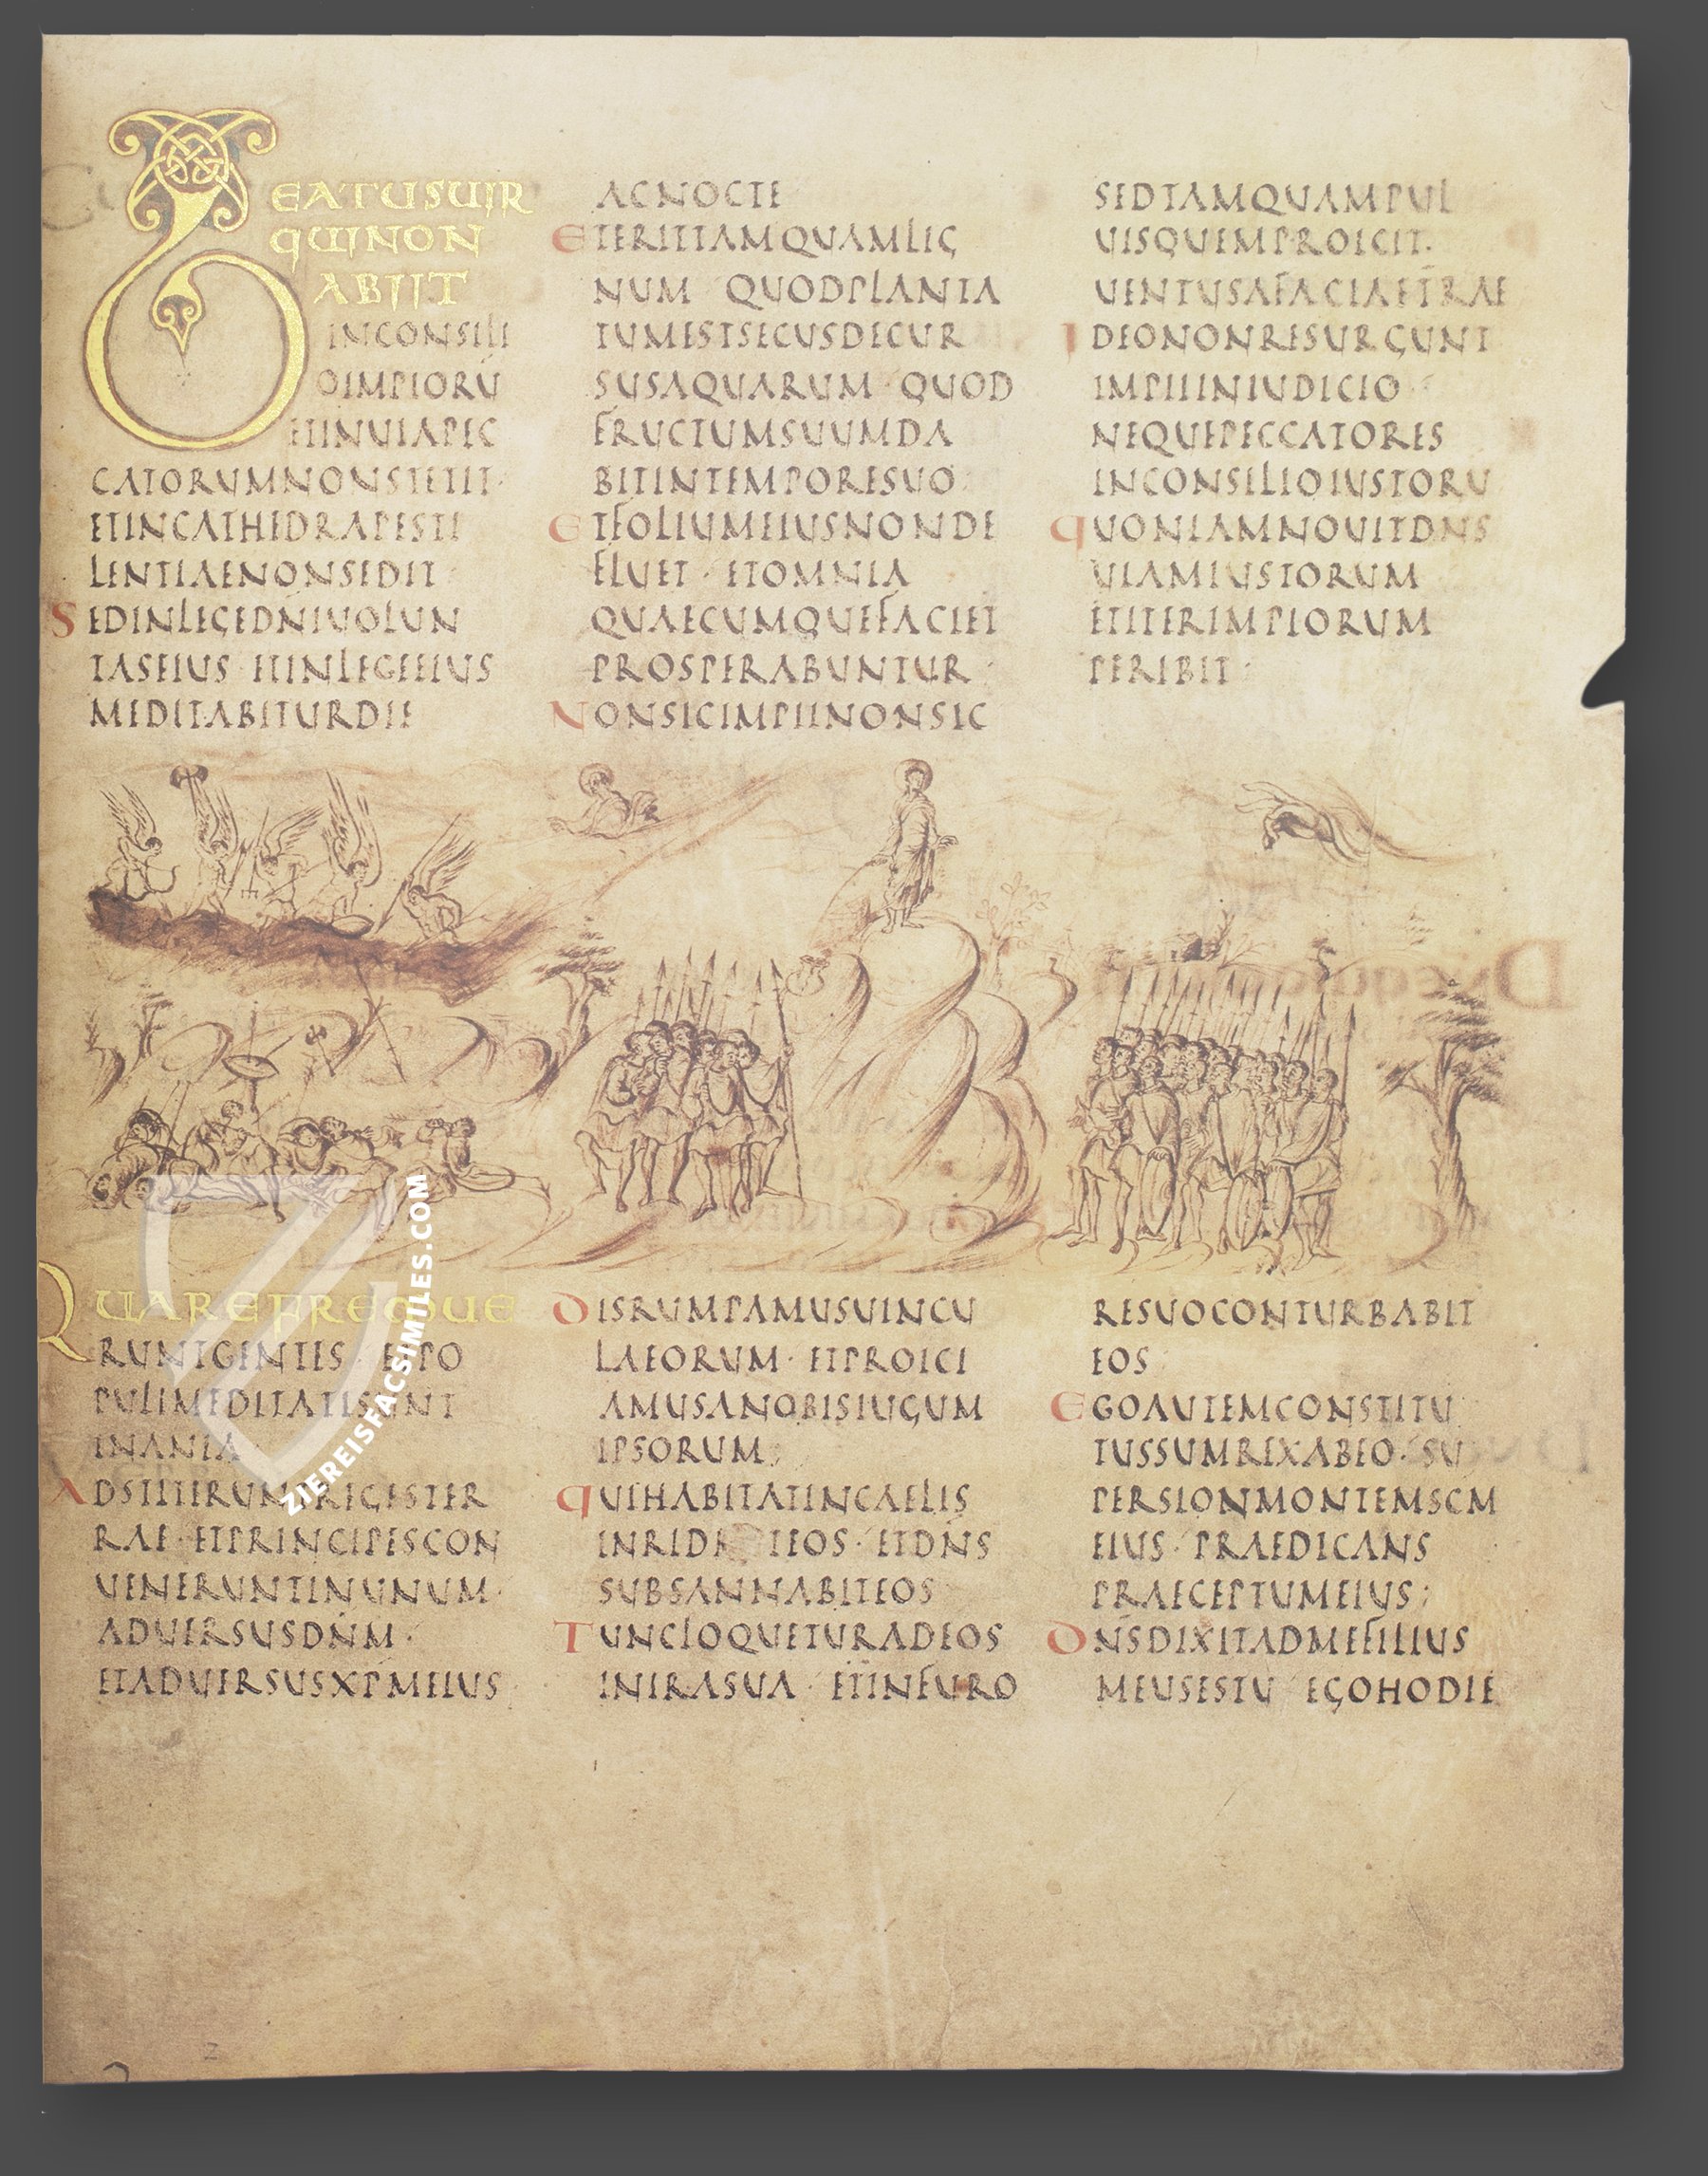 BEATUSUIR
QUINON
ABIIT
INCONSILI
OIMPIORŪ
ETINUIAPEC
CATORUMNONSTETIT·
ETINCATHEDRAPESTI
LENTIAENONSEDIT·
SEDINLEGEDN̄IUOLUN
TASEIUS·ETINLEGEEIUS
MEDITABITURDIE
ACNOCTE
ETERITTAMQUAMLIG
NUM QUODPLANTA
TUMESTSECUSDECUR
SUSAQUARUM·QUOD
FRUCTUMSUUMDA
BITINTEMPORESUO·
ETFOLIUMEIUSNONDE
FLUET·ETOMNIA
QUAECUMQUEFACIET
PROSPERABUNTUR·
NONSICIMPIINONSIC
SEDTAMQUAMPUL
UISQUEMPROICIT·
UENTUSAFACIAETERRAE
IDEONONRESURGUNT
IMPIIINIUDICIO·
NEQUEPECCATORES
INCONSILIOIUSTORU
QUONIAMNOUITDNS
UIAMIUSTORUM
ETITERIMPIORUM
PERIBIT·
QUAREFREMUE
RUNTGENTES·ETPO
PULIMEDITATISUNT
INANIA·
ADSTITERUNTREGESTER
RAE·ETPRINCIPESCON
UENERUNTINUNUM·
ADUERSUSDN̄M·
ETADUERSUSXP̄MEIUS
DISRUMPAMUSUINCU
LAEORUM·ETPROICI
AMUSANOBISIUGUM
IPSORUM;
QUIHABITATINCAELIS
INRIDE IEOS·ETDN̄S
SUBSANNABITEOS
TUNCLOQUETURADEOS
INIRASUA·ETINFURO
RESUOCONTURBABIT
EOS
EGOAUTEMCONSTITU
TUSSUMREXABEO·SU
PERSIONMONTEMSCM
EIUS·PRAEDICANS
PRAECEPTUMEIUS;
DN̄SDIXITADMEFILIUS
MEUSESTU EGOHODIE
ZIEREISFACSIMILES.COM